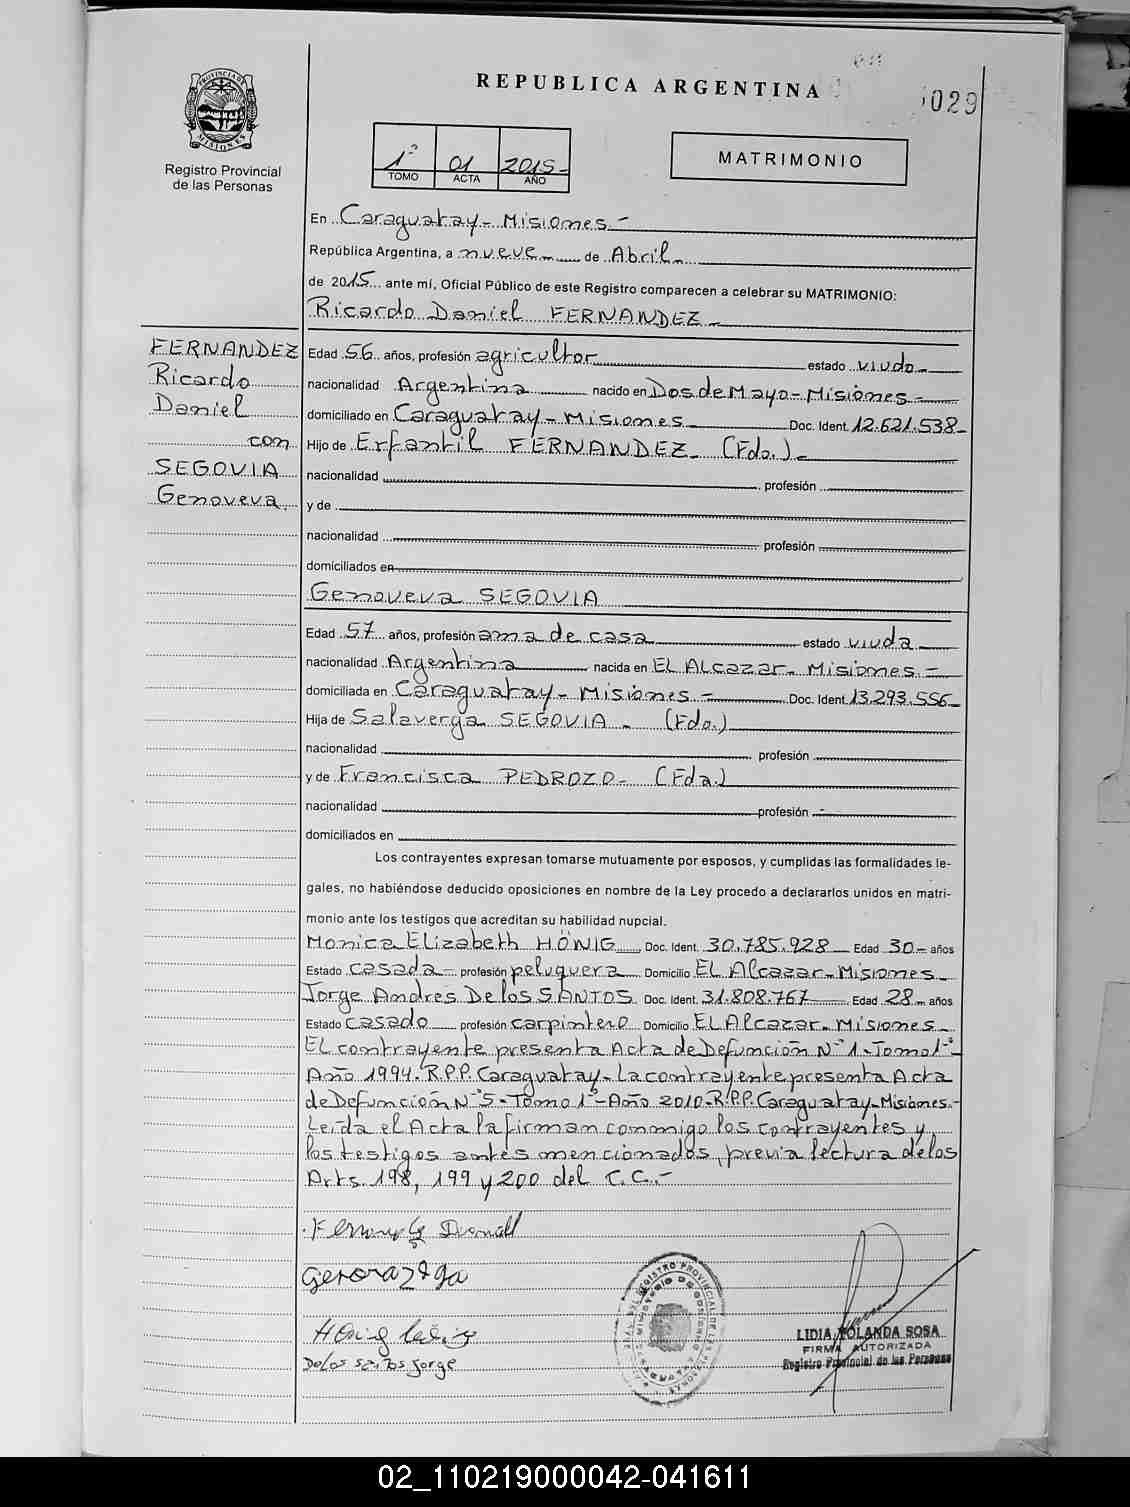 REPUBLICA ARGENTINA
029
PROVINCIA DE MISIONES
Registro Provincial
de las Personas
1º 01 2015-
TOMO ACTA AÑO
MATRIMONIO
En Caraguatay- Misiones.-
República Argentina, a nueve de Abril-
de 2015 ante mí, Oficial Público de este Registro comparecen a celebrar su MATRIMONIO:
Ricardo Daniel FERNANDEZ-
FERNANDEZ
Ricardo
Daniel
con
SEGOVIA
Genoveva
Edad 56 años, profesión agricultor estado viudo-
nacionalidad Argentina nacido en Dos de Mayo-Misiones-
domiciliado en Caraguatay-Misiones Doc. Ident. 12.621.538-
Hijo de Erfantil FERNANDEZ- (Fdo.)-
nacionalidad profesión
y de
nacionalidad profesión
domiciliados en
Genoveva SEGOVIA
Edad 57 años, profesión ama de casa estado viuda
nacionalidad Argentina nacida en EL Alcazar-Misiones-
domiciliada en Caraguatay-Misiones- Doc. Ident. 13.293.556-
Hija de Salaverga SEGOVIA- (Fdo.)
nacionalidad profesión
y de Francisca PEDROZO- (Fda.)
nacionalidad profesión
domiciliados en
Los contrayentes expresan tomarse mutuamente por esposos, y cumplidas las formalidades le-
gales, no habiéndose deducido oposiciones en nombre de la Ley procedo a declararlos unidos en matri-
monio ante los testigos que acreditan su habilidad nupcial.
Monica Elizabeth HÖNIG Doc. Ident. 30.785.928 Edad 30- años
Estado casada- profesión peluquera Domicilio EL Alcazar-Misiones-
Jorge Andres De los SANTOS Doc. Ident. 31.808.767 Edad 28- años
Estado casado profesión carpintero Domicilio EL Alcazar-Misiones-
El contrayente presenta Acta de Defunción Nº 1-Tomo 1º-
Año 1994.R.P.P. Caraguatay-La contrayente presenta Acta
de Defunción Nº 5-Tomo 1º-Año 2010-R.P.P. Caraguatay-Misiones.-
Leída el Acta la firman conmigo los contrayentes y
los testigos antes mencionados, previa lectura de los
Arts. 198, 199 y 200 del C.C.-
Hönig
Delos santos Jorge
REGISTRO PROVINCIAL DE LAS PERSONAS
MINISTERIO DE GOBIERNO
LIDIA YOLANDA SOSA
FIRMA AUTORIZADA
Registro Provincial de las Personas
02_110219000042-041611